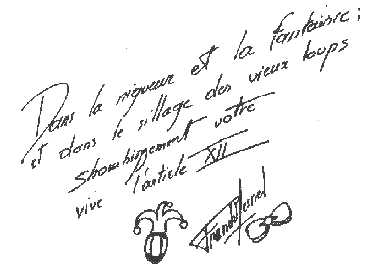 Dans la rigueur et la fantaisie ;
et dans le sillage des vieux loups
showbizement votre
vive l'article XII